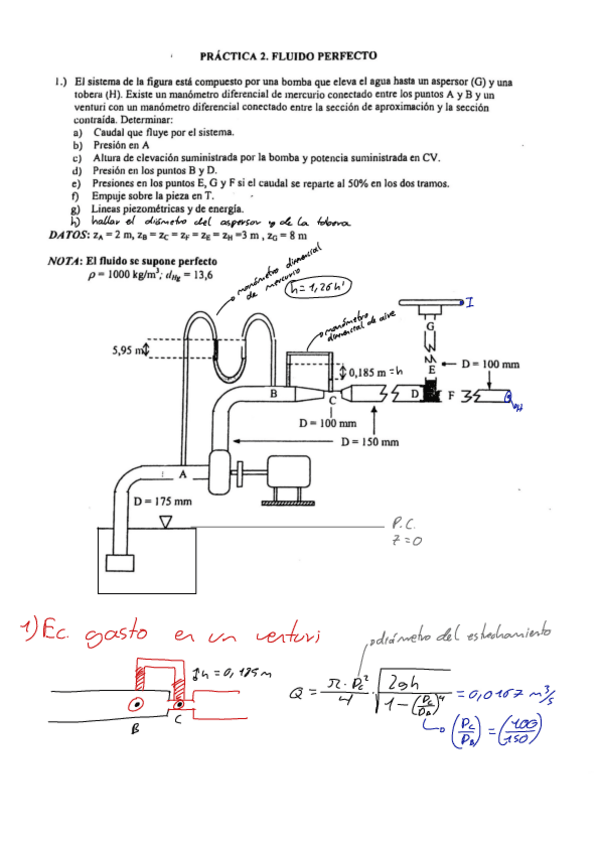 PRÁCTICA 2. FLUIDO PERFECTO
1.) El sistema de la figura está compuesto por una bomba que eleva el agua hasta un aspersor (G) y una
tobera (H). Existe un manómetro diferencial de mercurio conectado entre los puntos A y B y un
venturi con un manómetro diferencial conectado entre la sección de aproximación y la sección
contraída. Determinar:
a) Caudal que fluye por el sistema.
b) Presión en A
c) Altura de elevación suministrada por la bomba y potencia suministrada en CV.
d) Presión en los puntos B y D.
e) Presiones en los puntos E, G y F si el caudal se reparte al 50% en los dos tramos.
f) Empuje sobre la pieza en T.
g) Líneas piezométricas y de energía.
h) hallar el diámetro del aspersor y de la tobera
DATOS: zA = 2 m, zB = zC = zF = zE = zH =3 m , zG = 8 m
NOTA: El fluido se supone perfecto
ρ = 1000 kg/m³; dHg = 13,6
manómetro diferencial
de mercurio
h = 1,26h'
manómetro
diferencial de aire
I
G
5,95 m
0,185 m = h
E
D = 100 mm
B
C
D
F
H
D = 100 mm
D = 150 mm
A
D = 175 mm
P.C.
z = 0
1) Ec. gasto en un venturi
diámetro del estrechamiento
h = 0,185 m
Q = π · Dc² / 4 · √(2gh / 1 - (Dc/DB)⁴) = 0,0167 m³/s
(Dc/DB) = (100/150)
B
C